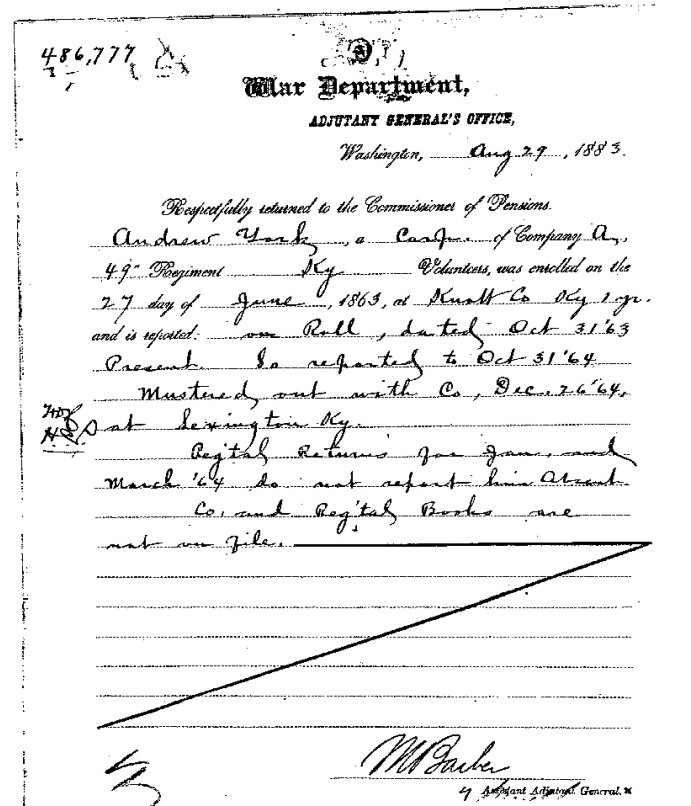 486,777
War Department,
ADJUTANT GENERAL'S OFFICE,
Washington, Aug 29, 1883.
Respectfully returned to the Commissioner of Pensions.
Andrew York, a Corp. of Company A,
49" Regiment Ky Volunteers, was enrolled on the
27 day of June, 1863, at Knott Co Ky 1 yr.
and is reported: on Roll, dated Oct 31 '63
Present. So reported to Oct 31 '64
Mustered out with Co, Dec. 26 '64,
at Lexington Ky.
Reg'tal Returns for Jan, and
March '64 do not report him Absent
Co. and Reg'tal Books are
not on file.
M Barber
Assistant Adjutant General.